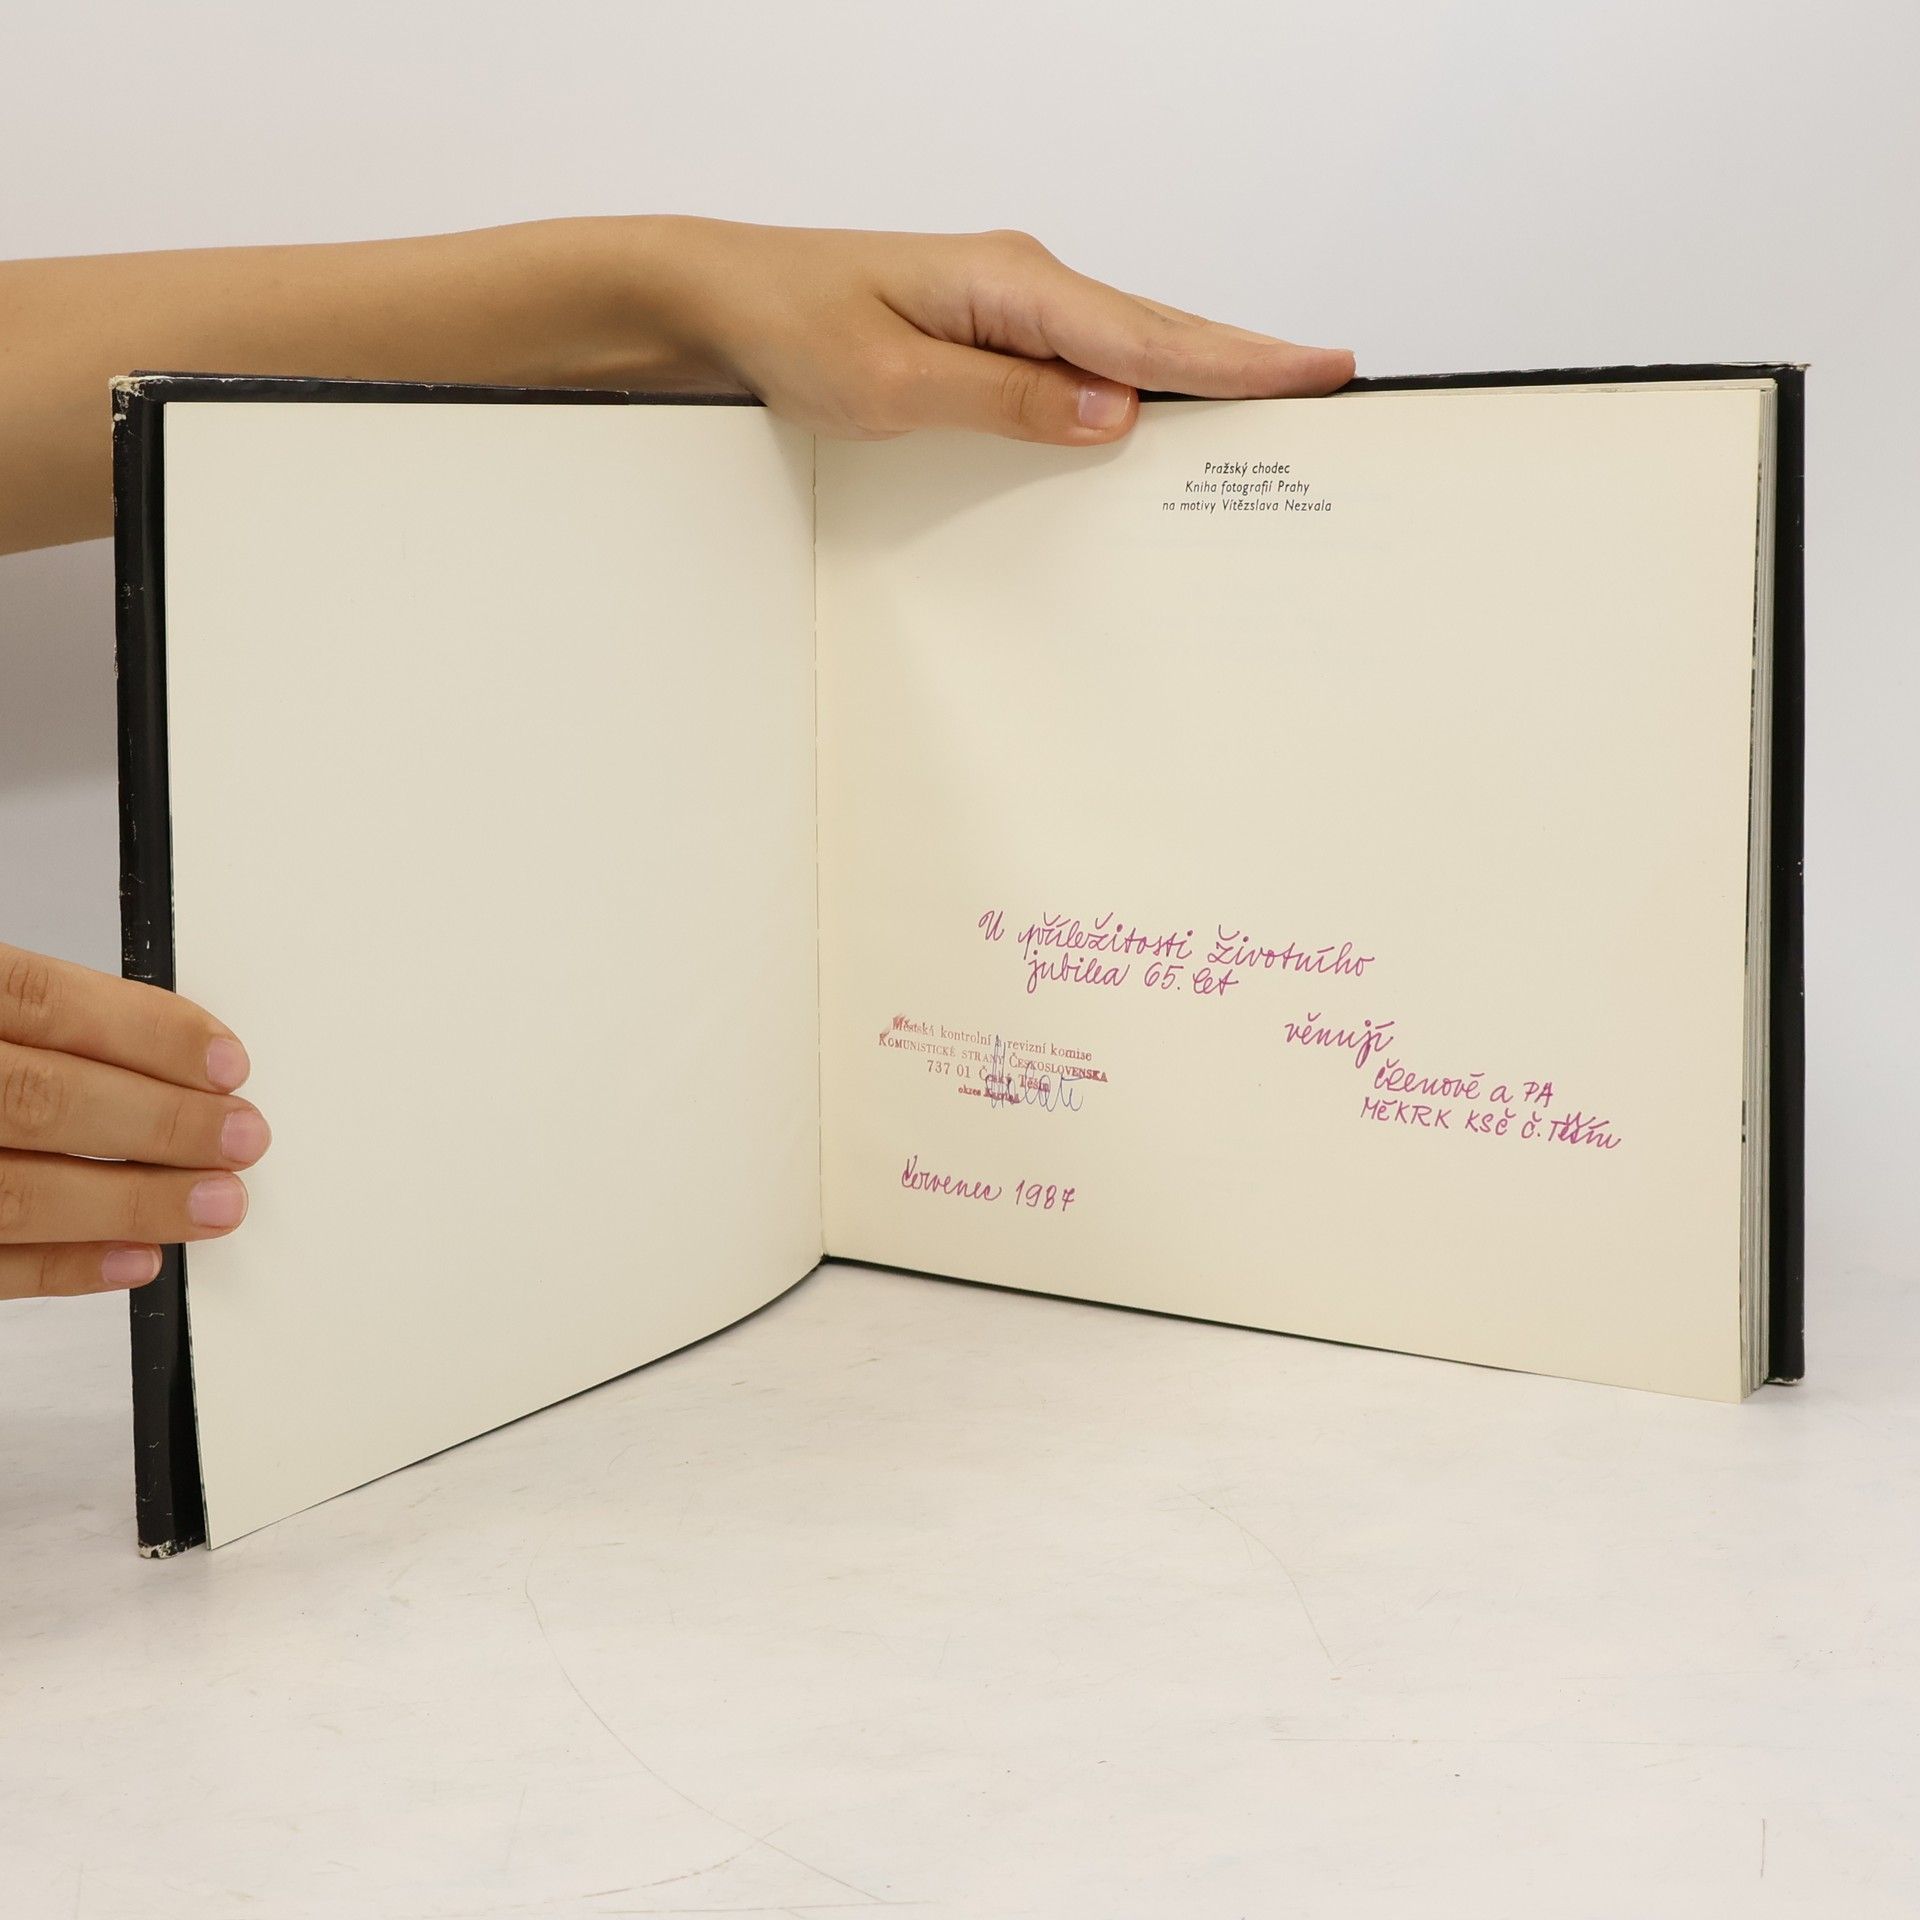 Pražský chodec
Kniha fotografií Prahy
na motivy Vítězslava Nezvala
U příležitosti životního
jubilea 65. let
věnují
členové a PA
MěKRK KSČ Č. Těšín
Městská kontrolní a revizní komise
KOMUNISTICKÉ STRANY ČESKOSLOVENSKA
737 01 Český Těšín
okres Karviná
Červenec 1987